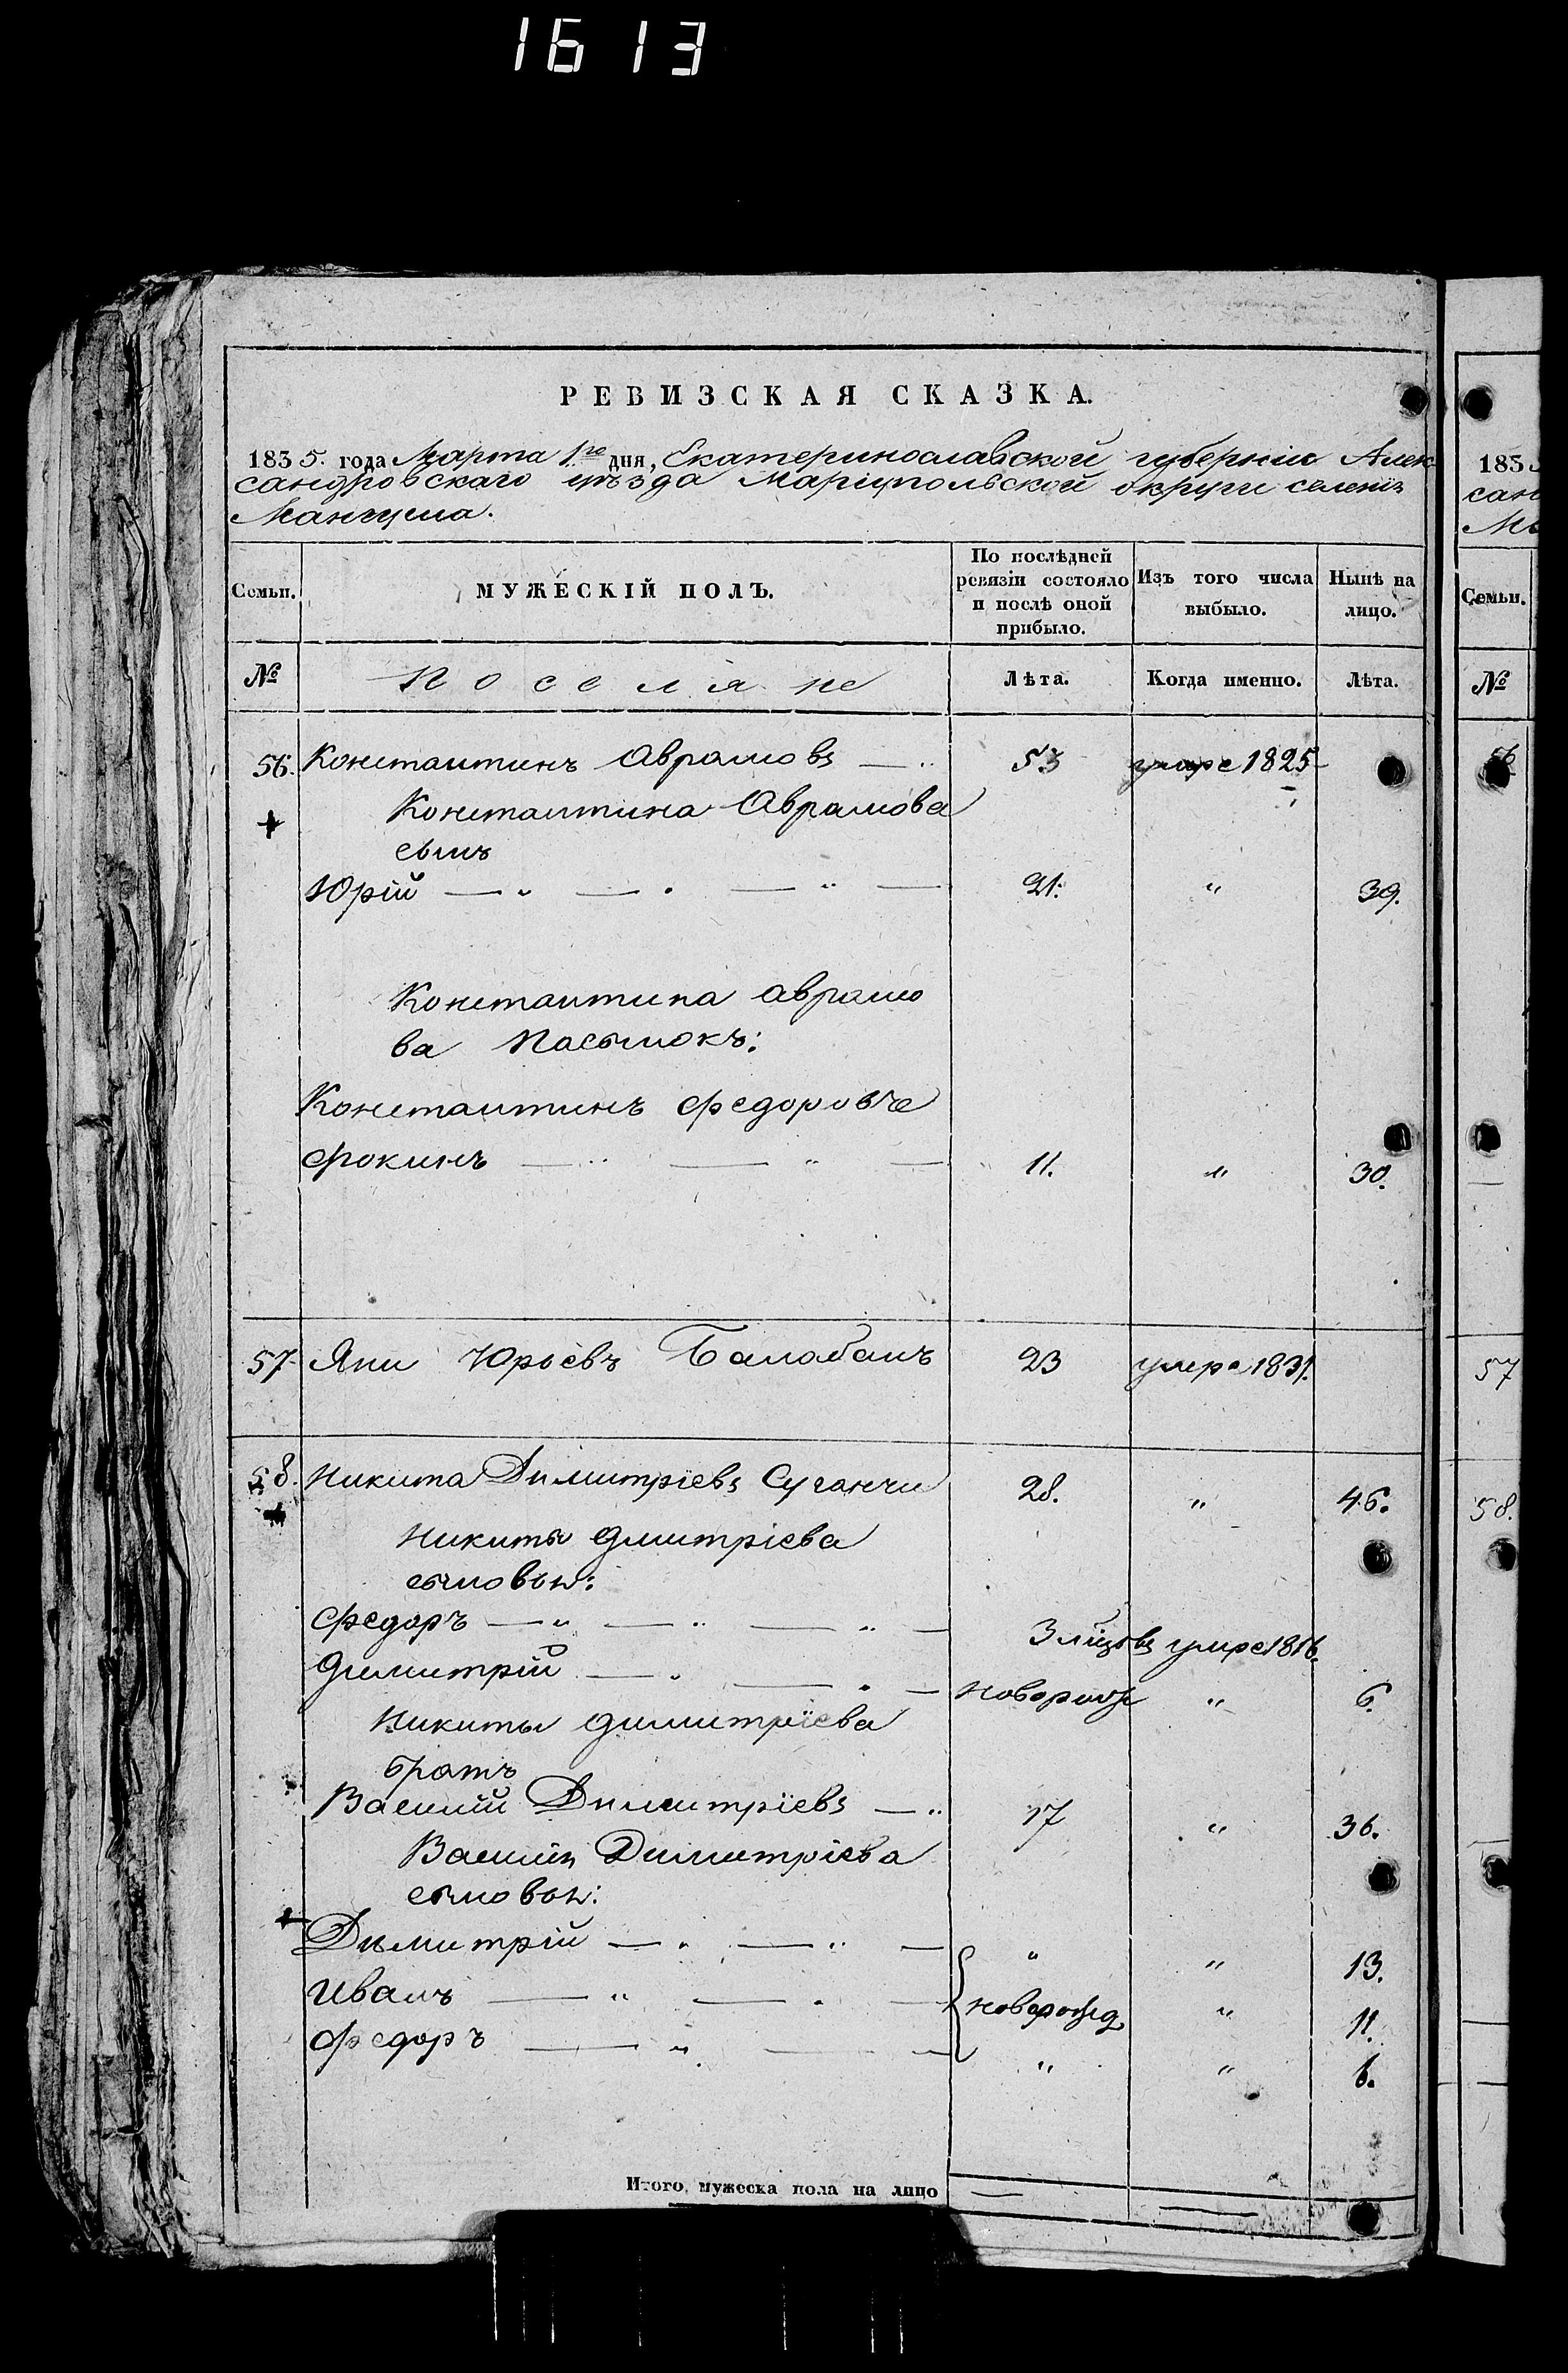 1613
РЕВИЗСКАЯ СКАЗКА.
1835. года Марта 1го дня, Екатеринославской губерніи Алек
сандровскаго уѣзда Маріупольской округи селенія
Мангуша.
Семьи. МУЖЕСКІЙ ПОЛЪ. По послѣдней ревизіи состояло и послѣ оной прибыло. Изъ того числа выбыло. Нынѣ на лицо.
№ Поселяне Лѣта. Когда именно. Лѣта.
56. Константинъ Аврамовъ 53 умре 1825
Константина Аврамова
сынъ
Юрій 21. " 39.
Константина Аврамо
ва Пасынокъ:
Константинъ Федоровъ
11. " 30.
57 Яни Юрьевъ Балабанъ 23 умре 1831.
58. Никита Димитріевъ Суганчи 28. " 46.
Никиты Дмитріева
сыновья:
Федоръ 3 умре 1816.
Димитрій новорож " 6.
Никиты Димитріева
братъ
Василій Димитріевъ 17 " 36.
Василія Димитріева
сыновья:
Димитрій " " 13.
Иванъ новорожд " 11.
Федоръ " " 6.
Итого мужеска пола на лицо
183
сан
Ма
Семьи.
№
56
57
58.